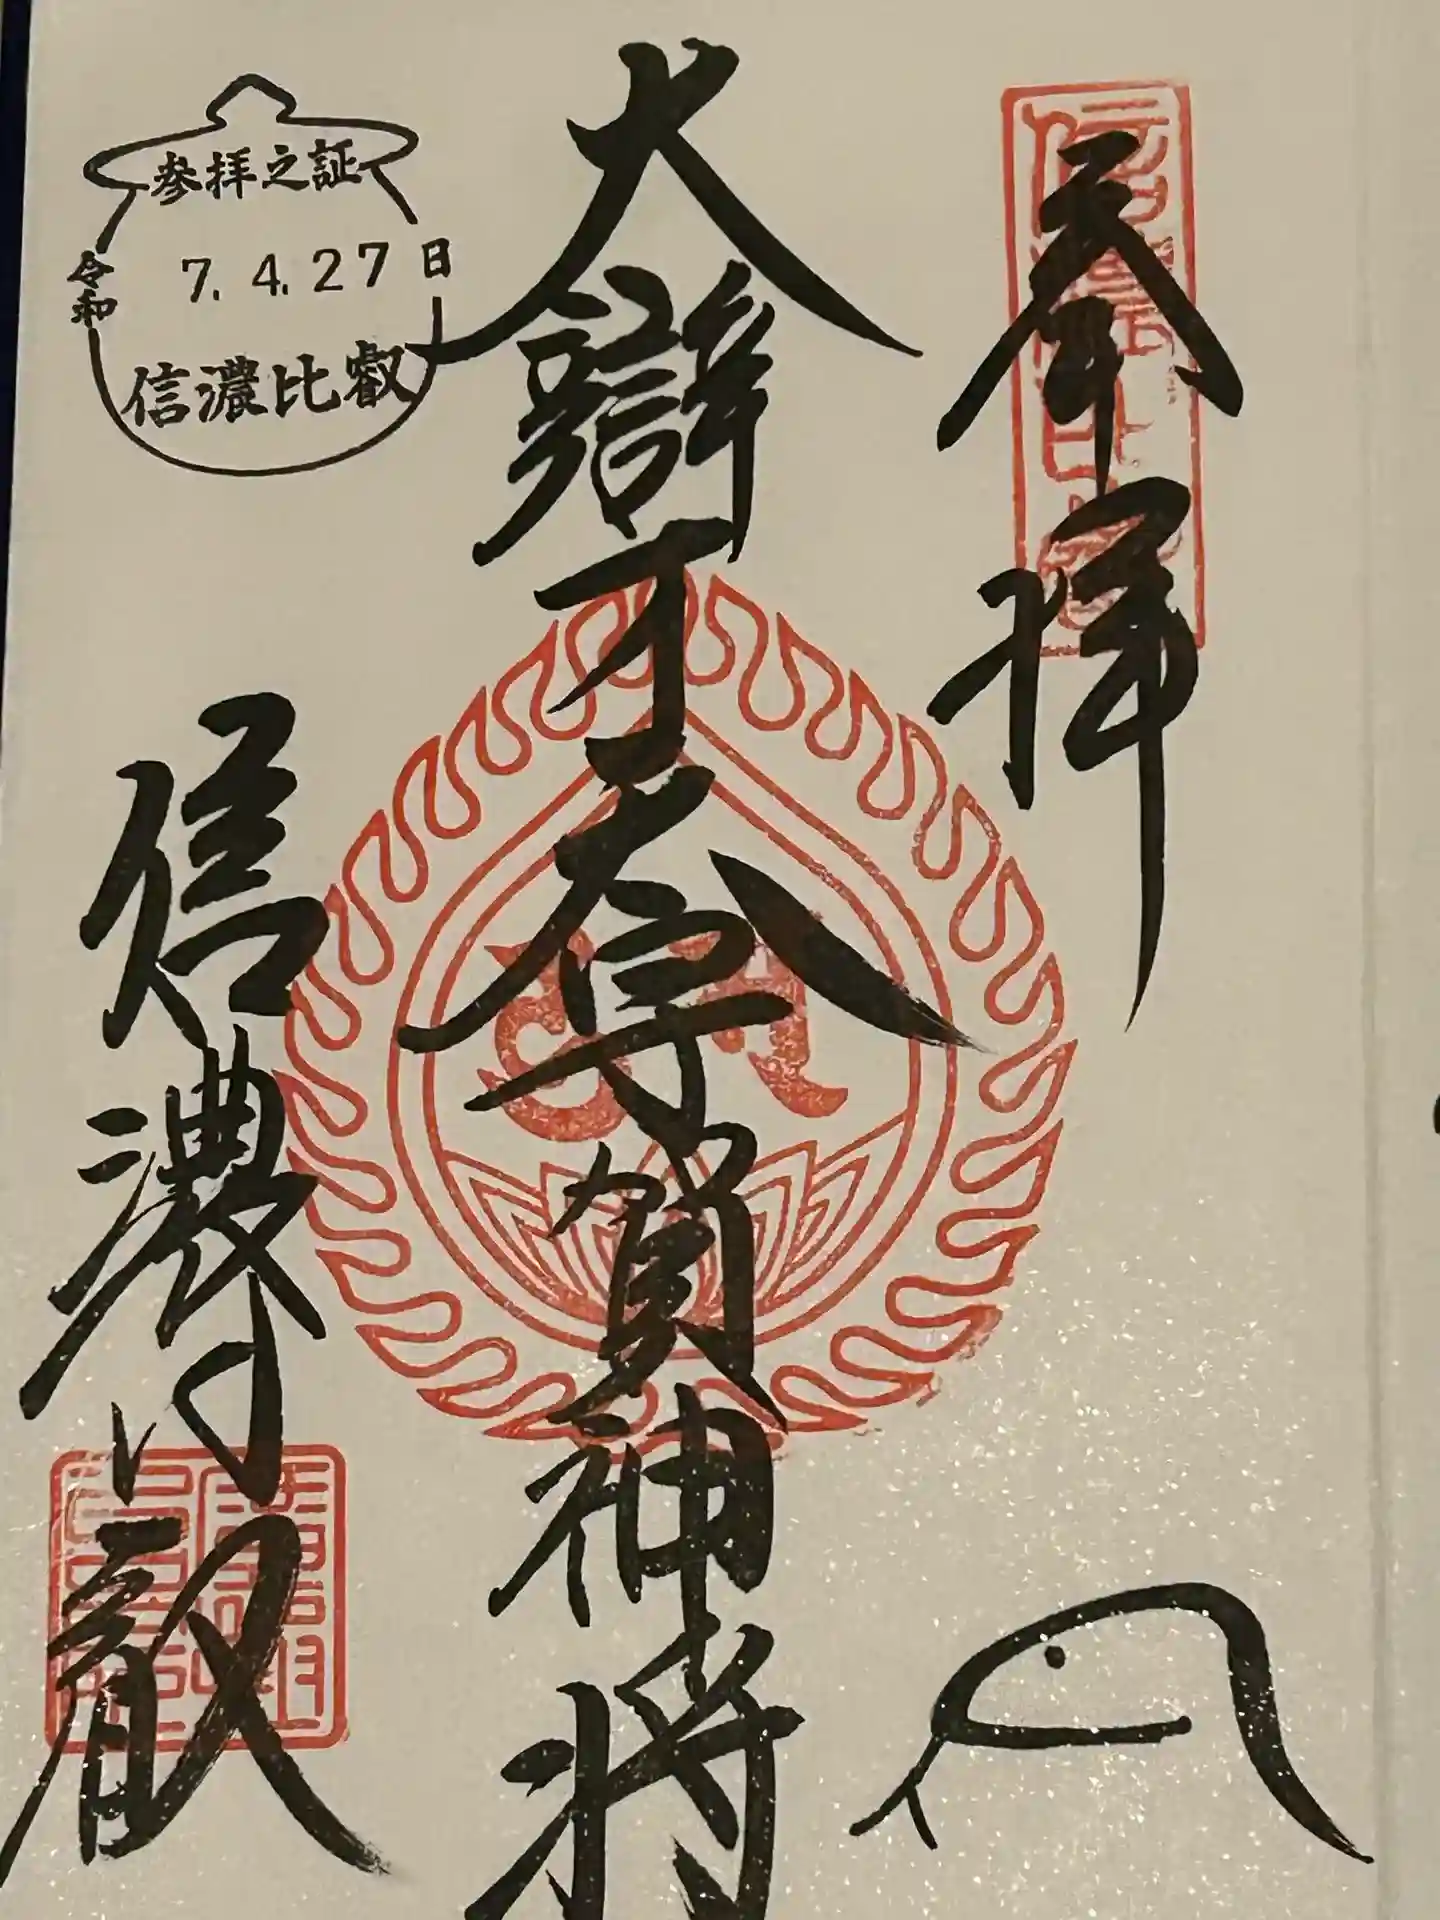 奉拝
大辯才天尊
賀神将
信濃比叡
参拝之証
令和 7.4.27日
信濃比叡